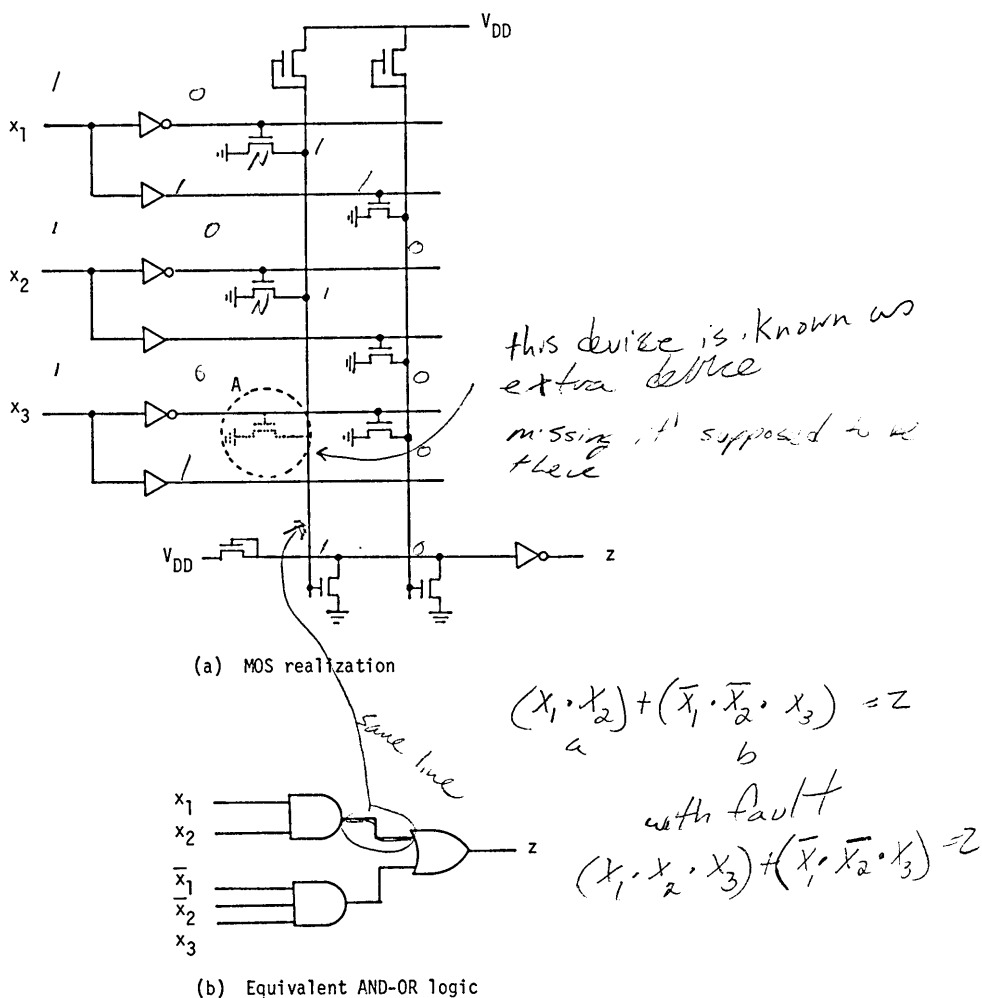 V_DD
1
0
x_1
N
1
1
1
1
0
0
x_2
N
1
this device is known as
extra device
missing it supposed to be
there
0
1
6
A
x_3
0
1
V_DD
1
0
z
(a) MOS realization
same line
(X_1 · X_2) + (X̅_1 · X̅_2 · X_3) = Z
a
b
with fault
(X_1 · X_2 · X_3) + (X̅_1 · X̅_2 · X_3) = Z
x_1
x_2
x̅_1
x̅_2
x_3
z
(b) Equivalent AND-OR logic